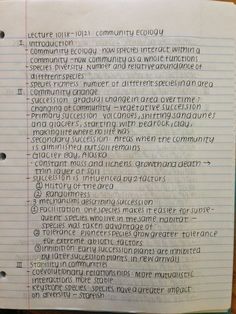 Lecture 10/18-10/21: Community Ecology
I Introduction
- community ecology: how species interact within a
community → how community as a whole functions
- species diversity: number and relative abundance of
different species
- species richness: number of different species in an area
II Community change
- succession: gradual change in area over time:
changing of community → vegetative succession
- Primary succession: volcanoes, shifting sand dunes
and glaciers, starting with bedrock, clay,
making life where no life was
- secondary succession: Areas when the community
is diminished but soil remains
- Glacier Bay, Alaska
- constant moss and lichens growth and death →
thin layer of soil
- succession is influenced by 2 factors
① History of the area
② Randomness
- 3 mechanisms describing succession
① Facilitation: one species makes it easier for subse-
quent species who live in the same habitat -
species was taken advantage of
② Tolerance: pioneer species grow greater tolerance
for extreme abiotic factors
③ Inhibition: Early succession plants are inhibited
by later succession plants in new arrivals
III Stability in communities
- Coevolutionary relationships: more mutualistic
interactions more stable
- Keystone species: species have a greater impact
on diversity - starfish